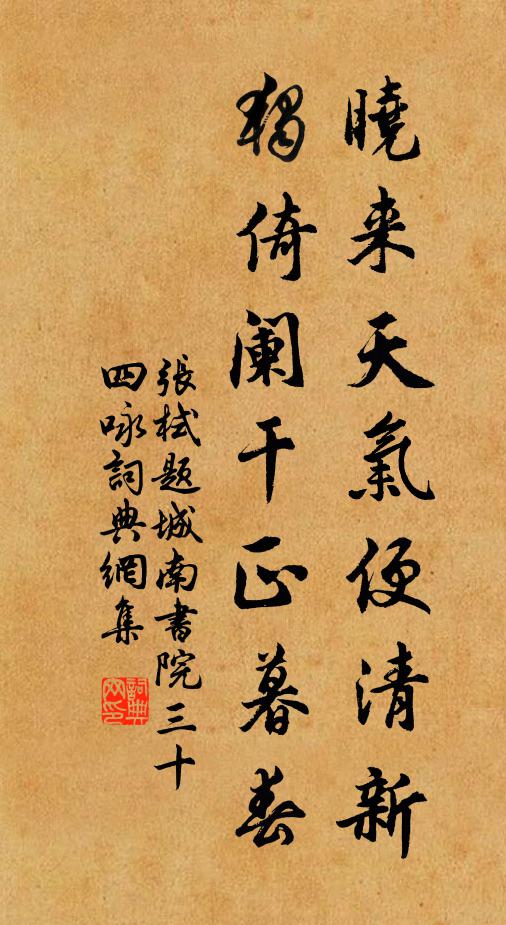 曉来天氣便清新
獨倚闌干正暮春
張栻題城南書院三十
四咏詞典網集
詞典
网印